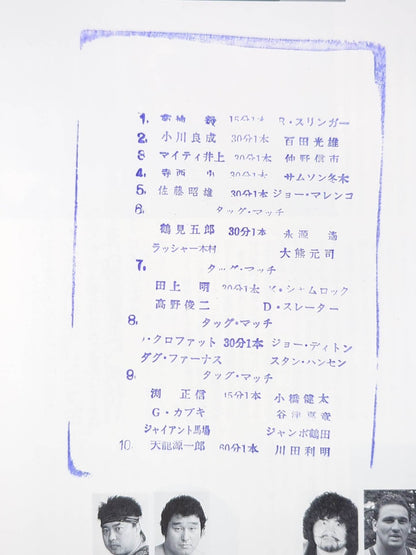 1. 菊地 毅 15分1本 R・スリンガー
2. 小川良成 30分1本 百田光雄
3 マイティ井上 30分1本 仲野信市
4. 寺西 勇 30分1本 サムソン冬木
5. 佐藤昭雄 30分1本 ジョー・マレンコ
6. タッグ・マッチ
鶴見五郎 30分1本 永源 遙
ラッシャー木村 大熊元司
7. タッグ・マッチ
田上 明 30分1本 シャムロック
高野俊二 D・スレーター
8. タッグ・マッチ
クロファット 30分1本 ジョー・ディトン
ダグ・ファーナス スタン・ハンセン
9. タッグ・マッチ
渕 正信 15分1本 小橋健太
G・カブキ 谷津嘉章
ジャイアント馬場 ジャンボ鶴田
10. 天龍源一郎 60分1本 川田利明